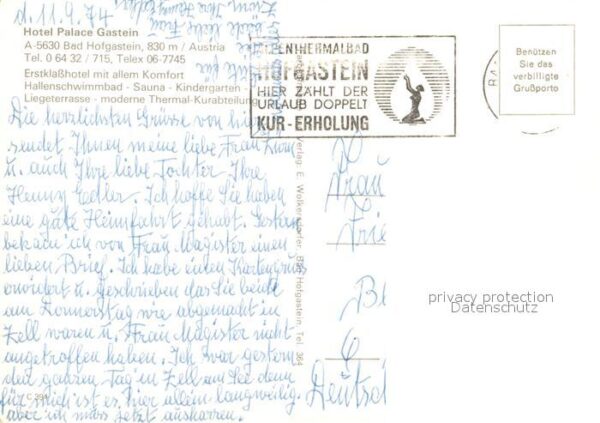 d. 11.9.74
Hotel Palace Gastein
A-5630 Bad Hofgastein, 830 m / Austria
Tel. 0 64 32 / 715, Telex 06-7745
Erstklaßhotel mit allem Komfort
Hallenschwimmbad - Sauna - Kindergarten -
Liegeterrasse - moderne Thermal-Kurabteilung
Die herzlichsten Grüsse von hier
sendet Ihnen meine liebe Frau
u. auch Ihre liebe Tochter Ihre
Henny Edler. Ich hoffe Sie haben
eine gute Heimfahrt gehabt. Gestern
bekam ich von Frau Magister einen
lieben Brief. Ich habe einen Kartengruss
erwidert u. geschrieben das Sie beide
am Donnerstag wie abgemacht in
Zell waren u. Frau Magister nicht
angetroffen haben. Ich war gestern
den ganzen Tag in Zell am See denn
für mich ist es hier allein langweilig.
aber ich muss jetzt ausharren.
C 394
THERMALBAD
HOFGASTEIN
HIER ZÄHLT DER
URLAUB DOPPELT
KUR-ERHOLUNG
BA
Benützen
Sie das
verbilligte
Grußporto
Verlag: E. Wolkersdorfer, Bad Hofgastein, Tel. 364
Frau
privacy protection
Datenschutz
6
Deutsch